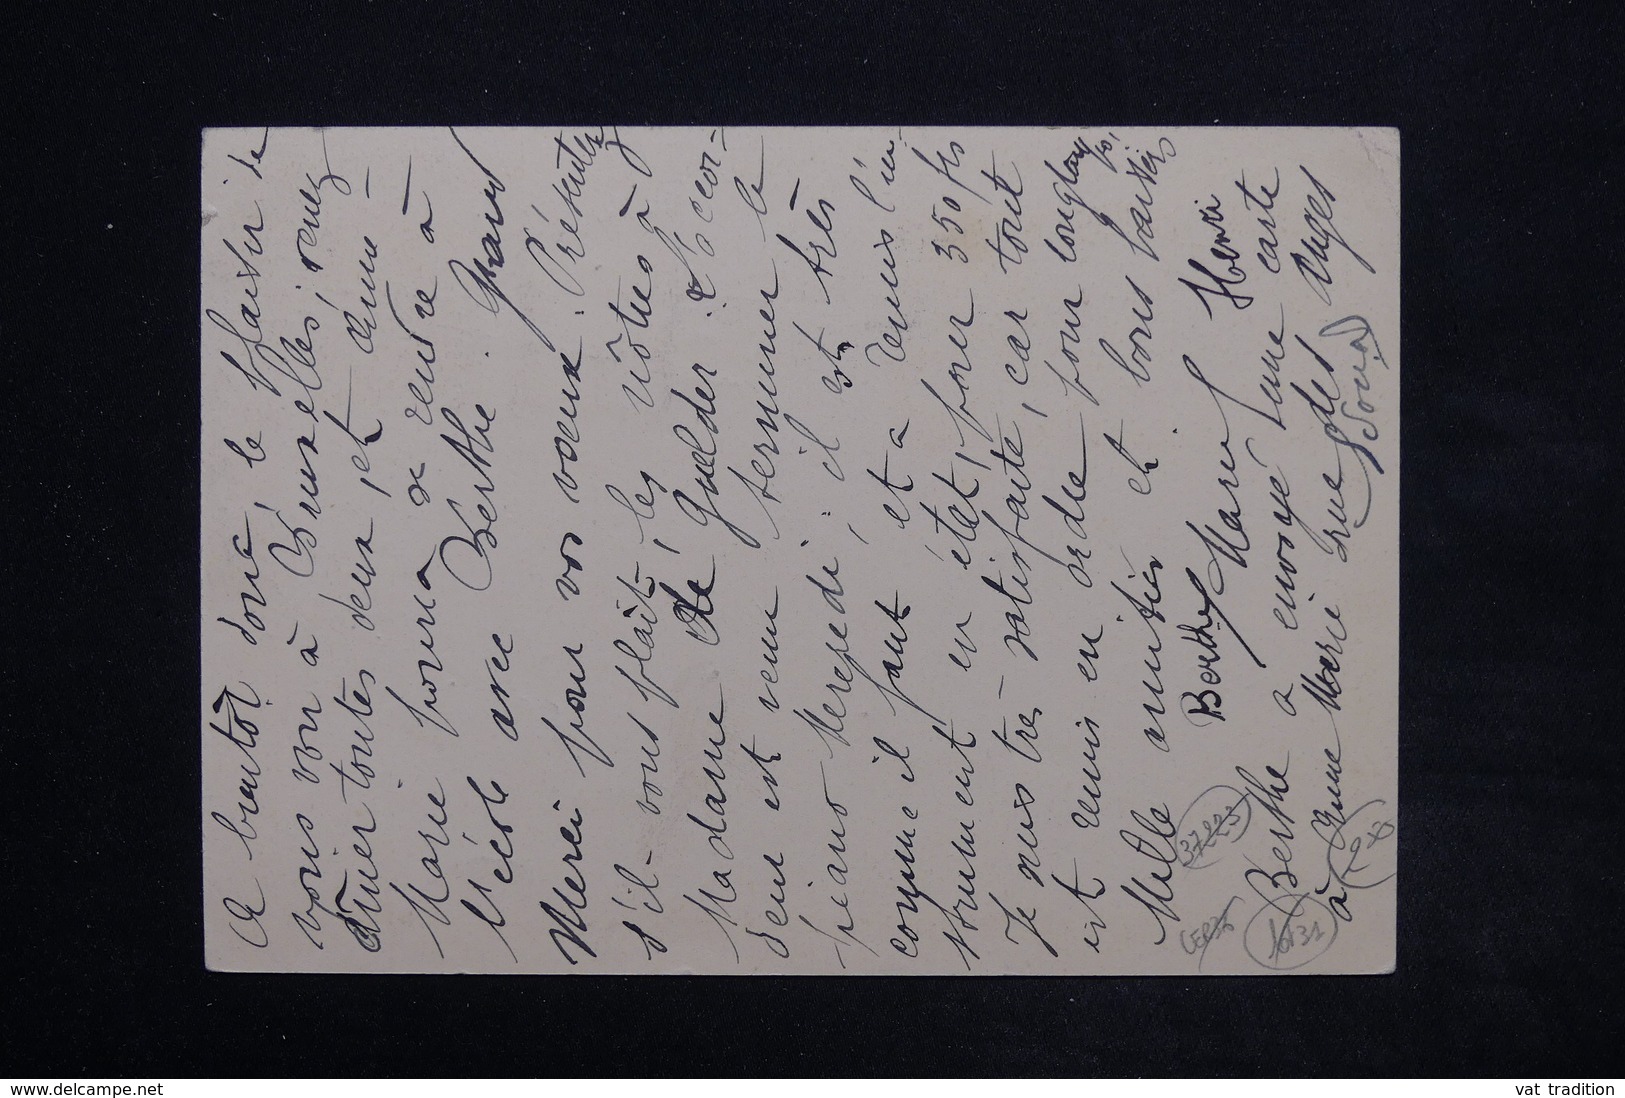 A bientôt donc, le plaisir de
vous voir à Bruxelles; venez
dîner toutes deux, et
Marie pourra se rendre à
l'école avec Berthe. Grand
Merci pour vos voeux. Présentez
s'il-vous plaît, les nôtres à
Madame De Guelder. L'accor-
deur est venu terminer le
piano Mercredi; il est très
comme il faut et a remis l'in-
strument en état, pour 350 frs
Je suis très-satisfaite, car tout
est remis en ordre pour longtemps.
Mille amitiés et bons baisers
Berthe Marie Henri
Berthe a envoyé une carte
à Marie rue des Anges
37225
CER35
10/31
www.delcampe.net
vat tradition